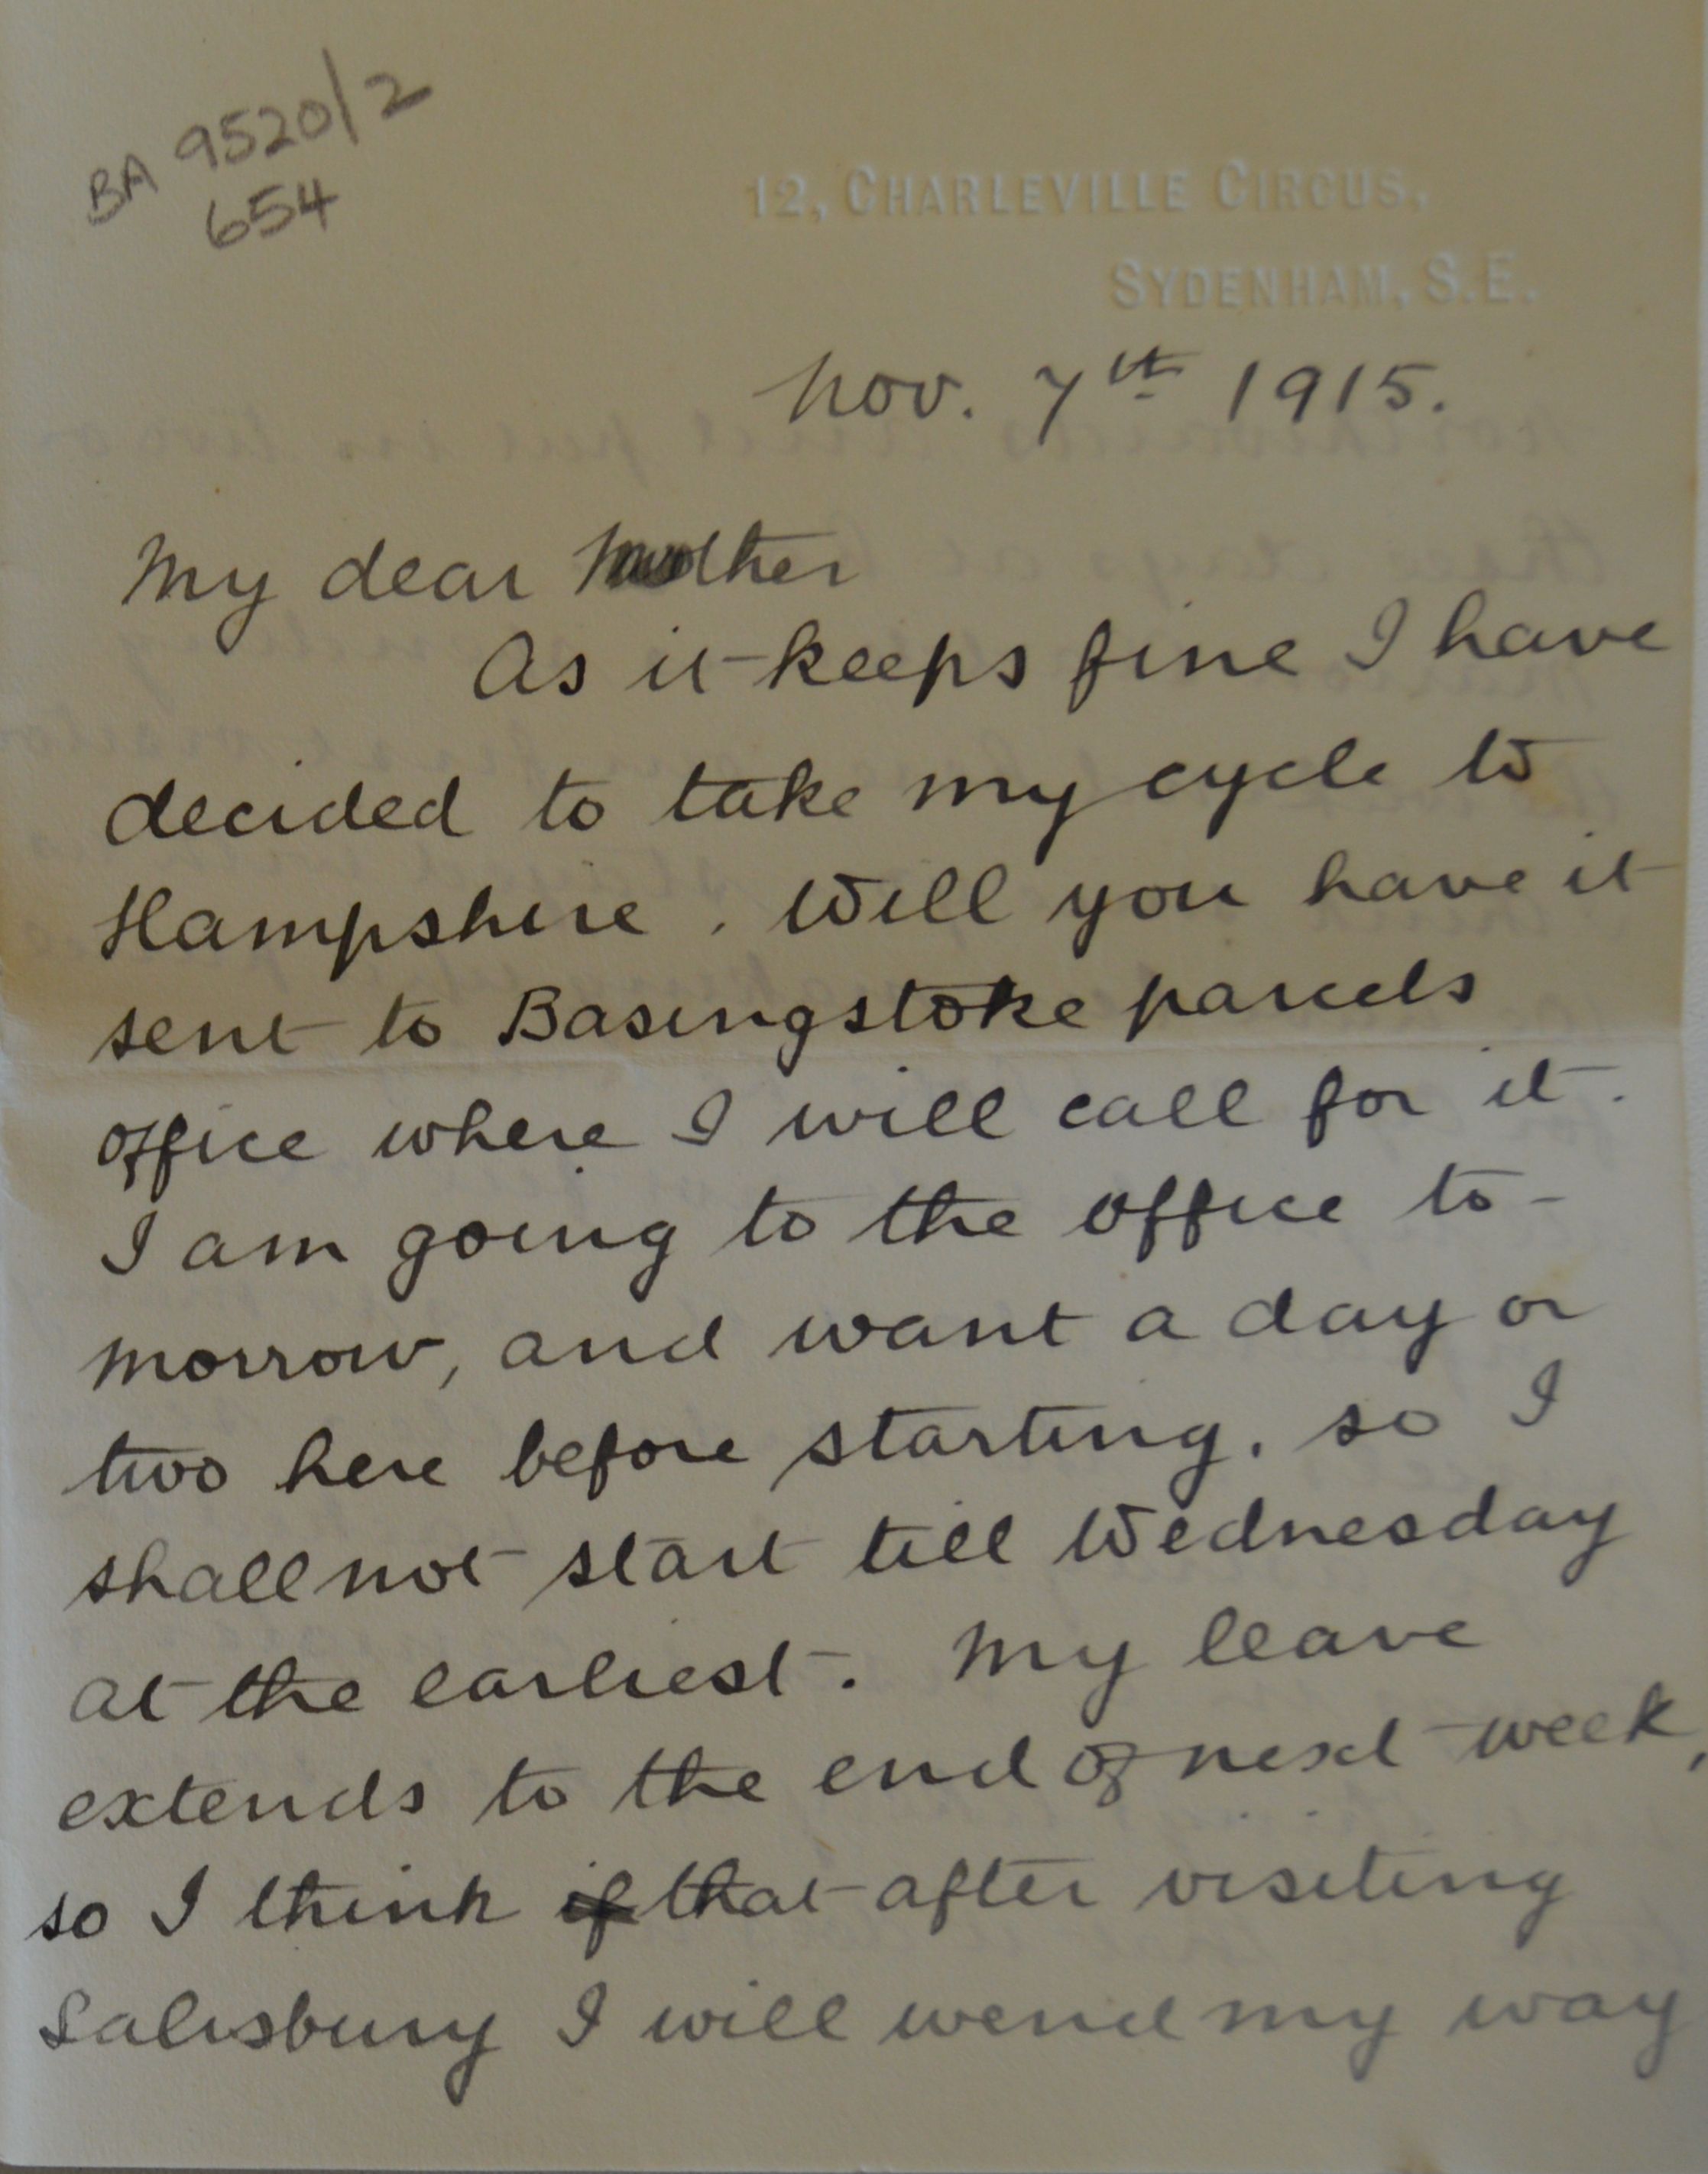 BA 9520/2
654
12, CHARLEVILLE CIRCUS,
SYDENHAM, S.E.
Nov. 7th 1915.
My dear Mother
As it keeps fine I have
decided to take my cycle to
Hampshire. Will you have it
sent to Basingstoke parcels
office where I will call for it.
I am going to the office to-
morrow, and want a day or
two here before starting. so I
shall not start till Wednesday
at the earliest. My leave
extends to the end of next week,
so I think if that after visiting
Salisbury I will wend my way